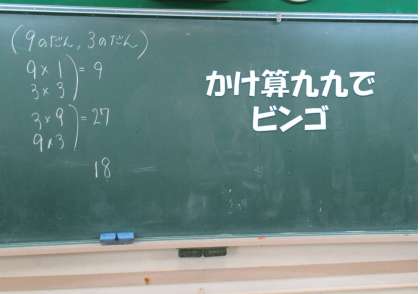 (9のだん, 3のだん)
9×1
3×3
) = 9
3×9
9×3
) = 27
18
かけ算九九で
ビンゴ